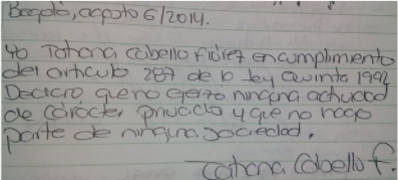 Bogotá, agosto 6/2014.
Yo Tatiana Cabello Flórez en cumplimiento
del articulo 287 de la ley Quinta 1992
Declaro que no ejerzo ninguna actividad
de carácter privado y que no hago
parte de ninguna sociedad.
Tatiana Cabello F.